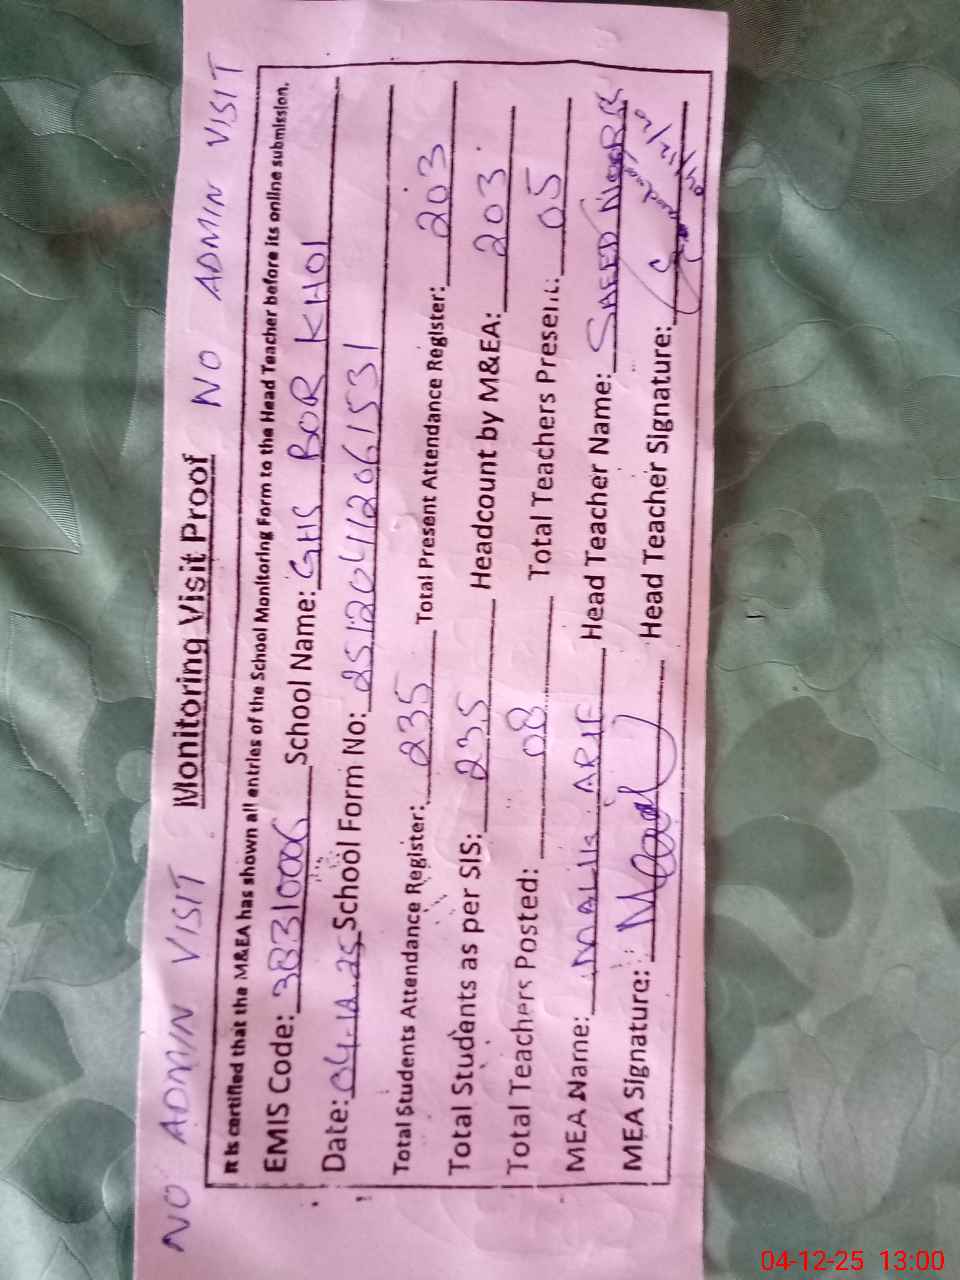 NO ADMIN VISIT Monitoring Visit Proof NO ADMIN VISIT
It is certified that the M&EA has shown all entries of the School Monitoring Form to the Head Teacher before its online submission.
EMIS Code: 38310006 School Name: GHS BOR KHOI
Date: 04-12-25 School Form No: 251204112061531
Total Students Attendance Register: 235 Total Present Attendance Register: 203
Total Students as per SIS: 235 Headcount by M&EA: 203
Total Teachers Posted: 08 Total Teachers Present: 05
MEA Name: MALIK ARIF Head Teacher Name: SAEED
MEA Signature: Head Teacher Signature:
04/12/20
04-12-25 13:00